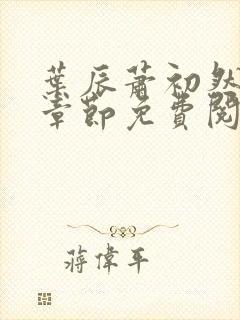 葉辰蕭初然
章節免費閱
蔣偉平